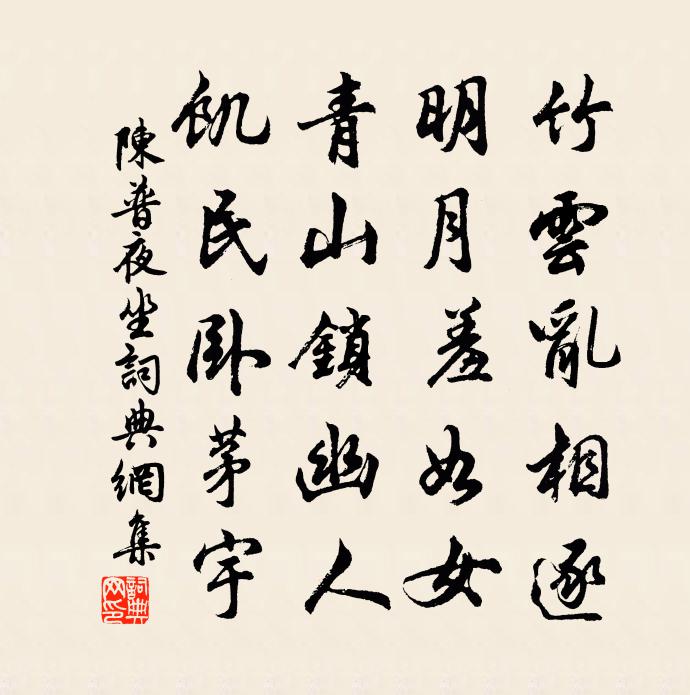 竹雲亂相逐
明月羞如女
青山鎖幽人
飢民臥茅宇
陳普夜坐詞典網集
詞典網印